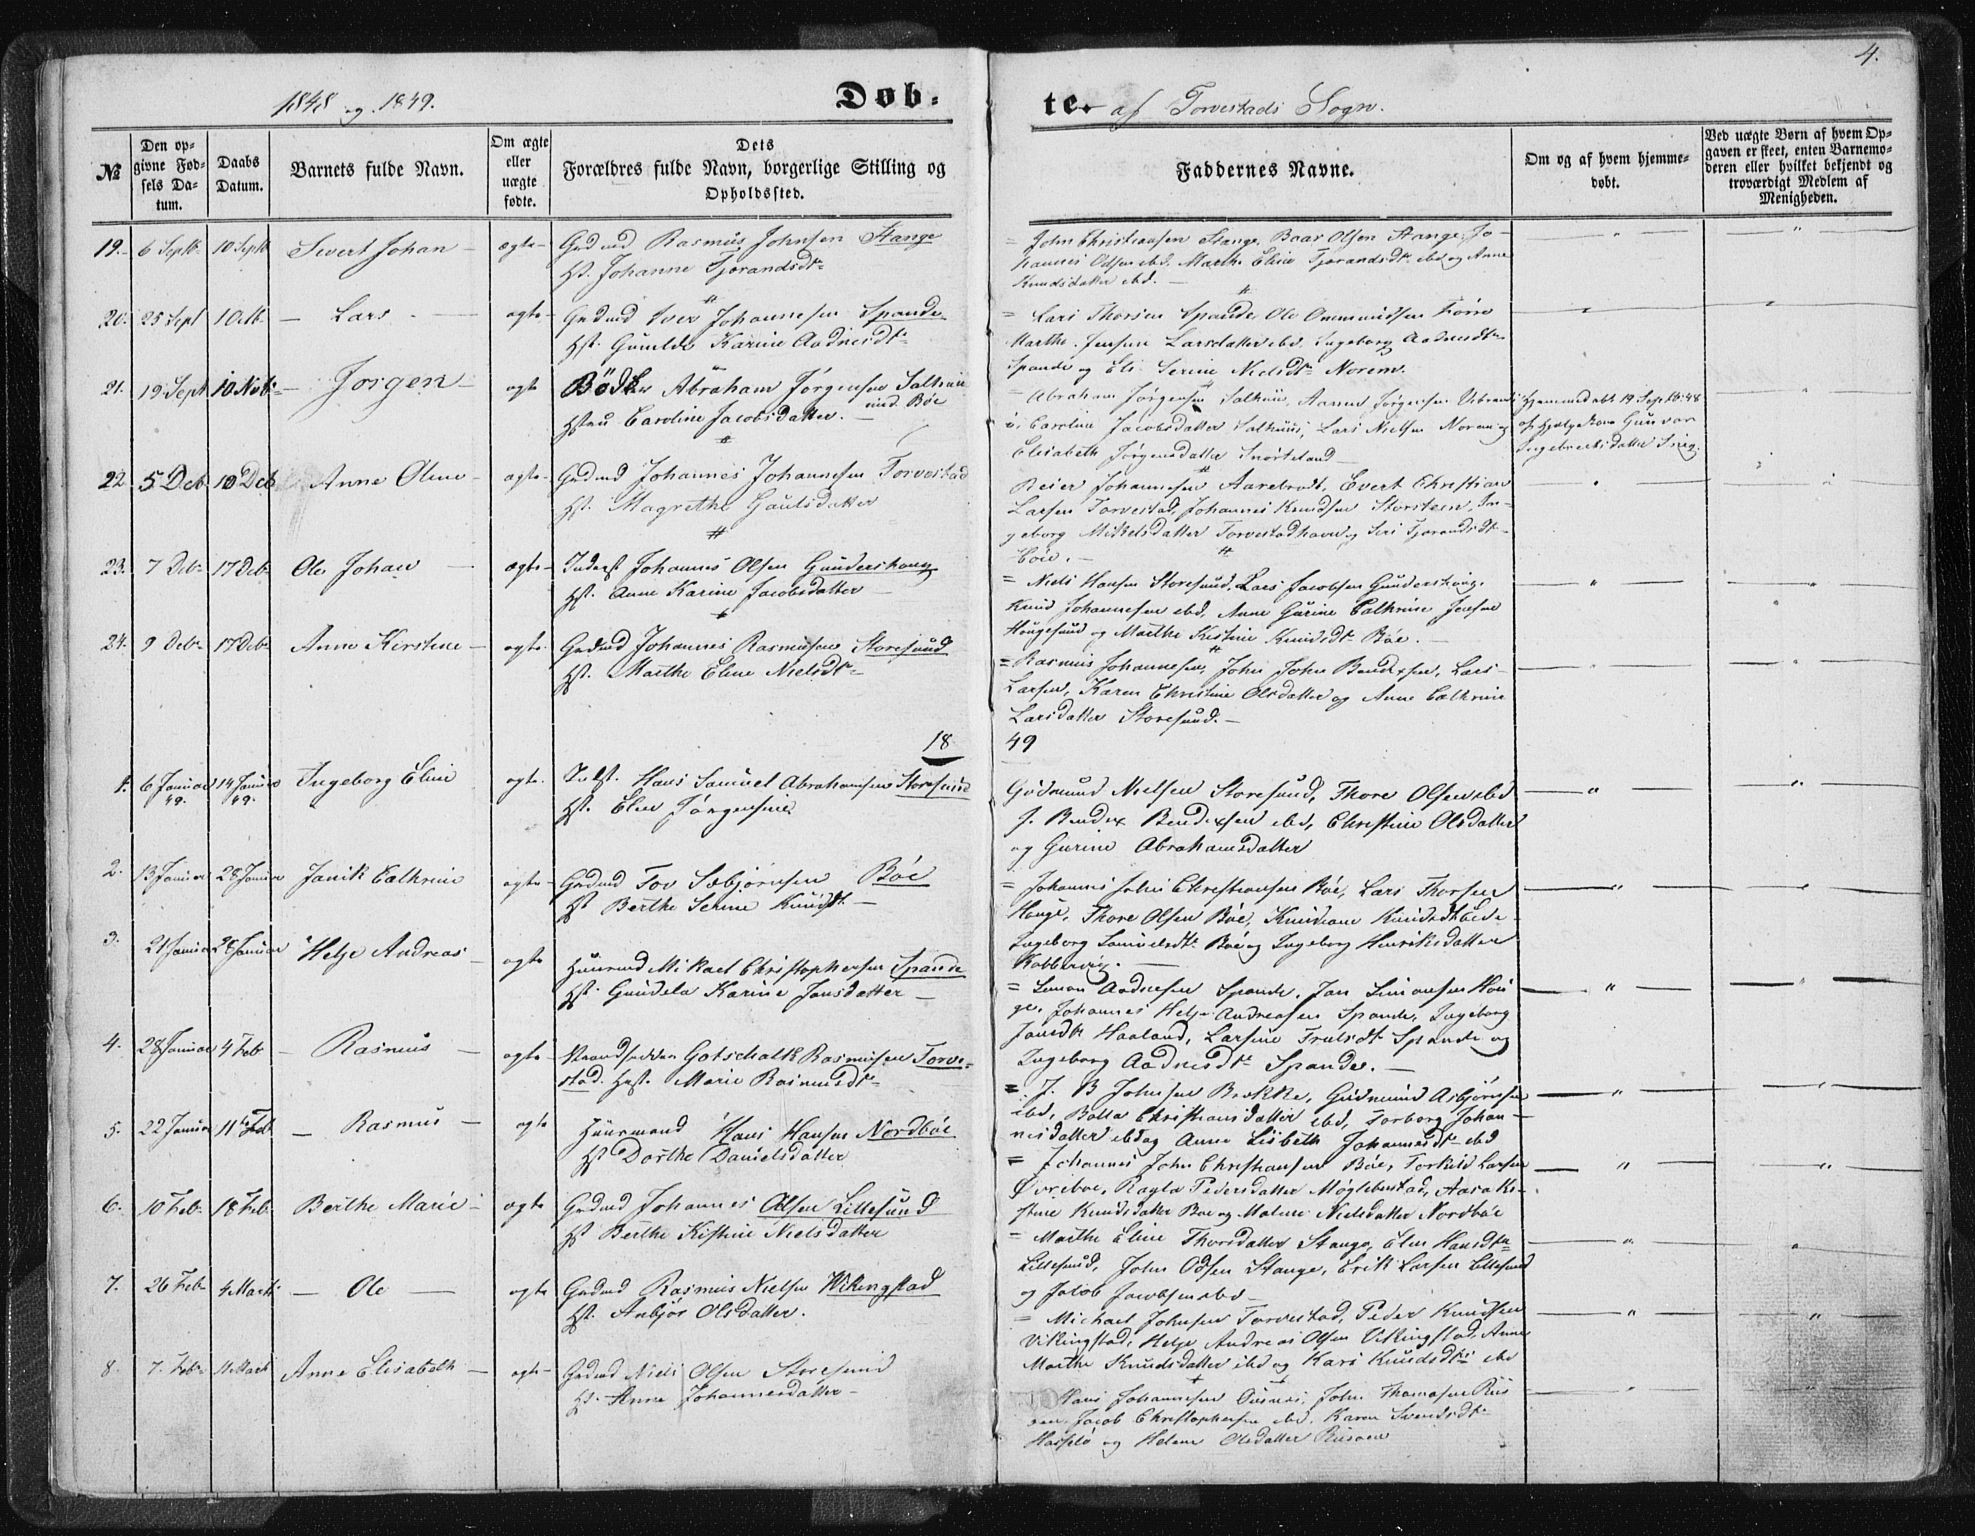 1848 og 1849.
Døb-
te. af Torvestads Sogn.
4.
№
Den op-
givne Fød-
sels Da-
tum.
Daabs
Datum.
Barnets fulde Navn.
Om ægte
eller
uægte
fødte.
Dets
Forældres fulde Navn, borgerlige Stilling og
Opholdssted.
Faddernes Navne.
Om og af hvem hjemme-
døbt.
Ved uægte Børn af hvem Op-
gaven er skeet, enten Barnemo-
deren eller hvilket bekjendt og
troværdigt Medlem af
Menigheden.
19. 6 Septb. 10 Septb Sivert Johan ægte Grdmd Rasmus Johnsen Stange
Hst. Johanne Tjørandsdtr
= John Christiansen Stange, Baar Olsen Stange, Jo-
hannes Odsen ebd. Marthe Eline Tjørandsdtr ebd og Anne
Knudsdatter ebd. —
20. 25 Sept 1 Octb. — Lars — ægte Grdmd Iver Johannesen Spande
Hst. Gunilde Karine Aadnesdtr
= Lars Thorsen Spande, Ole Ommundsen
Marthe Larsdatter ebd, Ingeborg Aadnesdtr
Spande og Eli Serine Nielsdtr Norem.
21. 19 Sept 10 Novb — Jørgen — ægte Bødker Abraham Jørgensen Salhuus
ind. Bøe
Hstru Caroline Jacobsdatter. —
= Abraham Jørgensen Salhuus, Jørgensen
Caroline Jacobsdatter Salhuus, Lars Nielsen Norem og
Elisabeth Jørgensdatter Snørteland
Hjemmedøbt 19 Septb. 48
af Hjelpekone Gunvor
Ingebretsdatter
22 5 Decb 10 Decb Anne Oline ægte Grdmd Johannes Johannesen Torvestad
Hst. Magrethe Gautsdatter
Reier Johannesen Evert Christian
Larsen Torvestad, Johannes Knudsen Storsteen, In-
geborg Mikkelsdatter Torvestadhavn og Siri Tjørandsdtr
Bøe. —
23. 7 Decb 17 Decb Ole Johan ægte Inderst Johannes Olsen Gundershoug
Hst. Anne Karine Jacobsdatter
= Niels Hansen Storesund, Lars Jacobsen Gundershoug,
Knud Johannesen ebd, Anne Gurine Cathrine Jensen
Hougesund og Marthe Kistine Knudsdtr Bøe. —
24. 9 Decb 17 Decb Anne Kirstine ægte Grdmd Johannes Rasmusen Storesund
Hst. Marthe Eline Nielsdtr
= Rasmus Johannesen, John John Bendixsen, Lars
Larsen, Karen Christine Olsdatter og Anne Cathrine
Larsdatter Storesund. —
18 49
1. 6 Januar 49. 14 Januar 49. Ingeborg Eline ægte Indst. Hans Samuel Abrahamsen Storesund
Hst. Elen Jørgensine
Gudmund Nielsen Storesund, Thore Olsen ebd
J. Bendix Bendixsen ebd, Christine Olsdatter
og Gurine Abrahamsdatter
2. 13 Januar 28 Januar Janik Cathrine ægte Grdmd Tor Sæbjørnsen Bøe
Hst Berthe Serine Knudsdtr —
= Johannes John Christiansen Bøe, Lars Thorsen
Houge, Thore Olsen Bøe,
Ingeborg Samuelsdtr Bøe og Ingeborg Henriksdatter
Kobbervig. —
3. 21 Januar 28 Januar Helje Andreas ægte Huusmd Mikael Christophersen Spande
Hst. Gundela Karine Jonsdatter —
= Simon Aadnesen Spande, Jan Simonsen Hou-
ge, Johannes Helje Andreasen Spande, Ingeborg
Jansdtr Haaland, Larsine Trulsdtr Spande og
Ingeborg Aadnesdtr Spande. —
4. 28 Januar 4 Feb — Rasmus — ægte Strandsidder Gotschalk Rasmusen Torve-
stad. Hst. Marie Rasmusdtr
= J. B Johnsen Brekke, Gudmund Asbjørnsen
ebd, Bolla Christiansdatter ebd, Torborg Johan-
nesdatter ebd og Anne Lisbeth Johannesdtr ebd
5. 22 Januar 11te Feb. — Rasmus — ægte Huusmand Hans Hansen Nordbøe
Hst Dorthe Danielsdatter
= Johannes John Christiansen Bøe, Torkild Larsen
Øvrebøe, Ragla Pedersdatter Møglebustad,
Knudsdatter Bøe og Malene Nielsdatter Nordbøe
6. 10 Feb. 18 Feb. Berthe Marie — ægte Grdmd Johannes Olsen Lillesund
Hst Berthe Kistine Nielsdatter
= Marthe Eline Thorsdatter Stange, Elen Hansdtr
Lillesund, John Odsen Stange, Erik Larsen Lillesund
og Jakob Jacobsen ebd —
7. 26 Feb. 4 Marts — Ole — ægte Grdmd Rasmus Nielsen Vikingstad
Hst. Anbjør Olsdatter.
= Michael Johnsen Torvestad, Peder Knudsen
Vikingstad, Helje Andreas Olsen Vikingstad, Anne
Marthe Knudsdatter ebd og Kari Knudsdtr ebd
8. 7. Feb. 11 Marts Anne Elisabeth — ægte Grdmd Niels Olsen Storesund
Hst. Anne Johannesdatter —
Hans Johannesen John Thomasen
Jacob Christophersen ebd. Karen Svendsdtr
og Helene Olsdatter